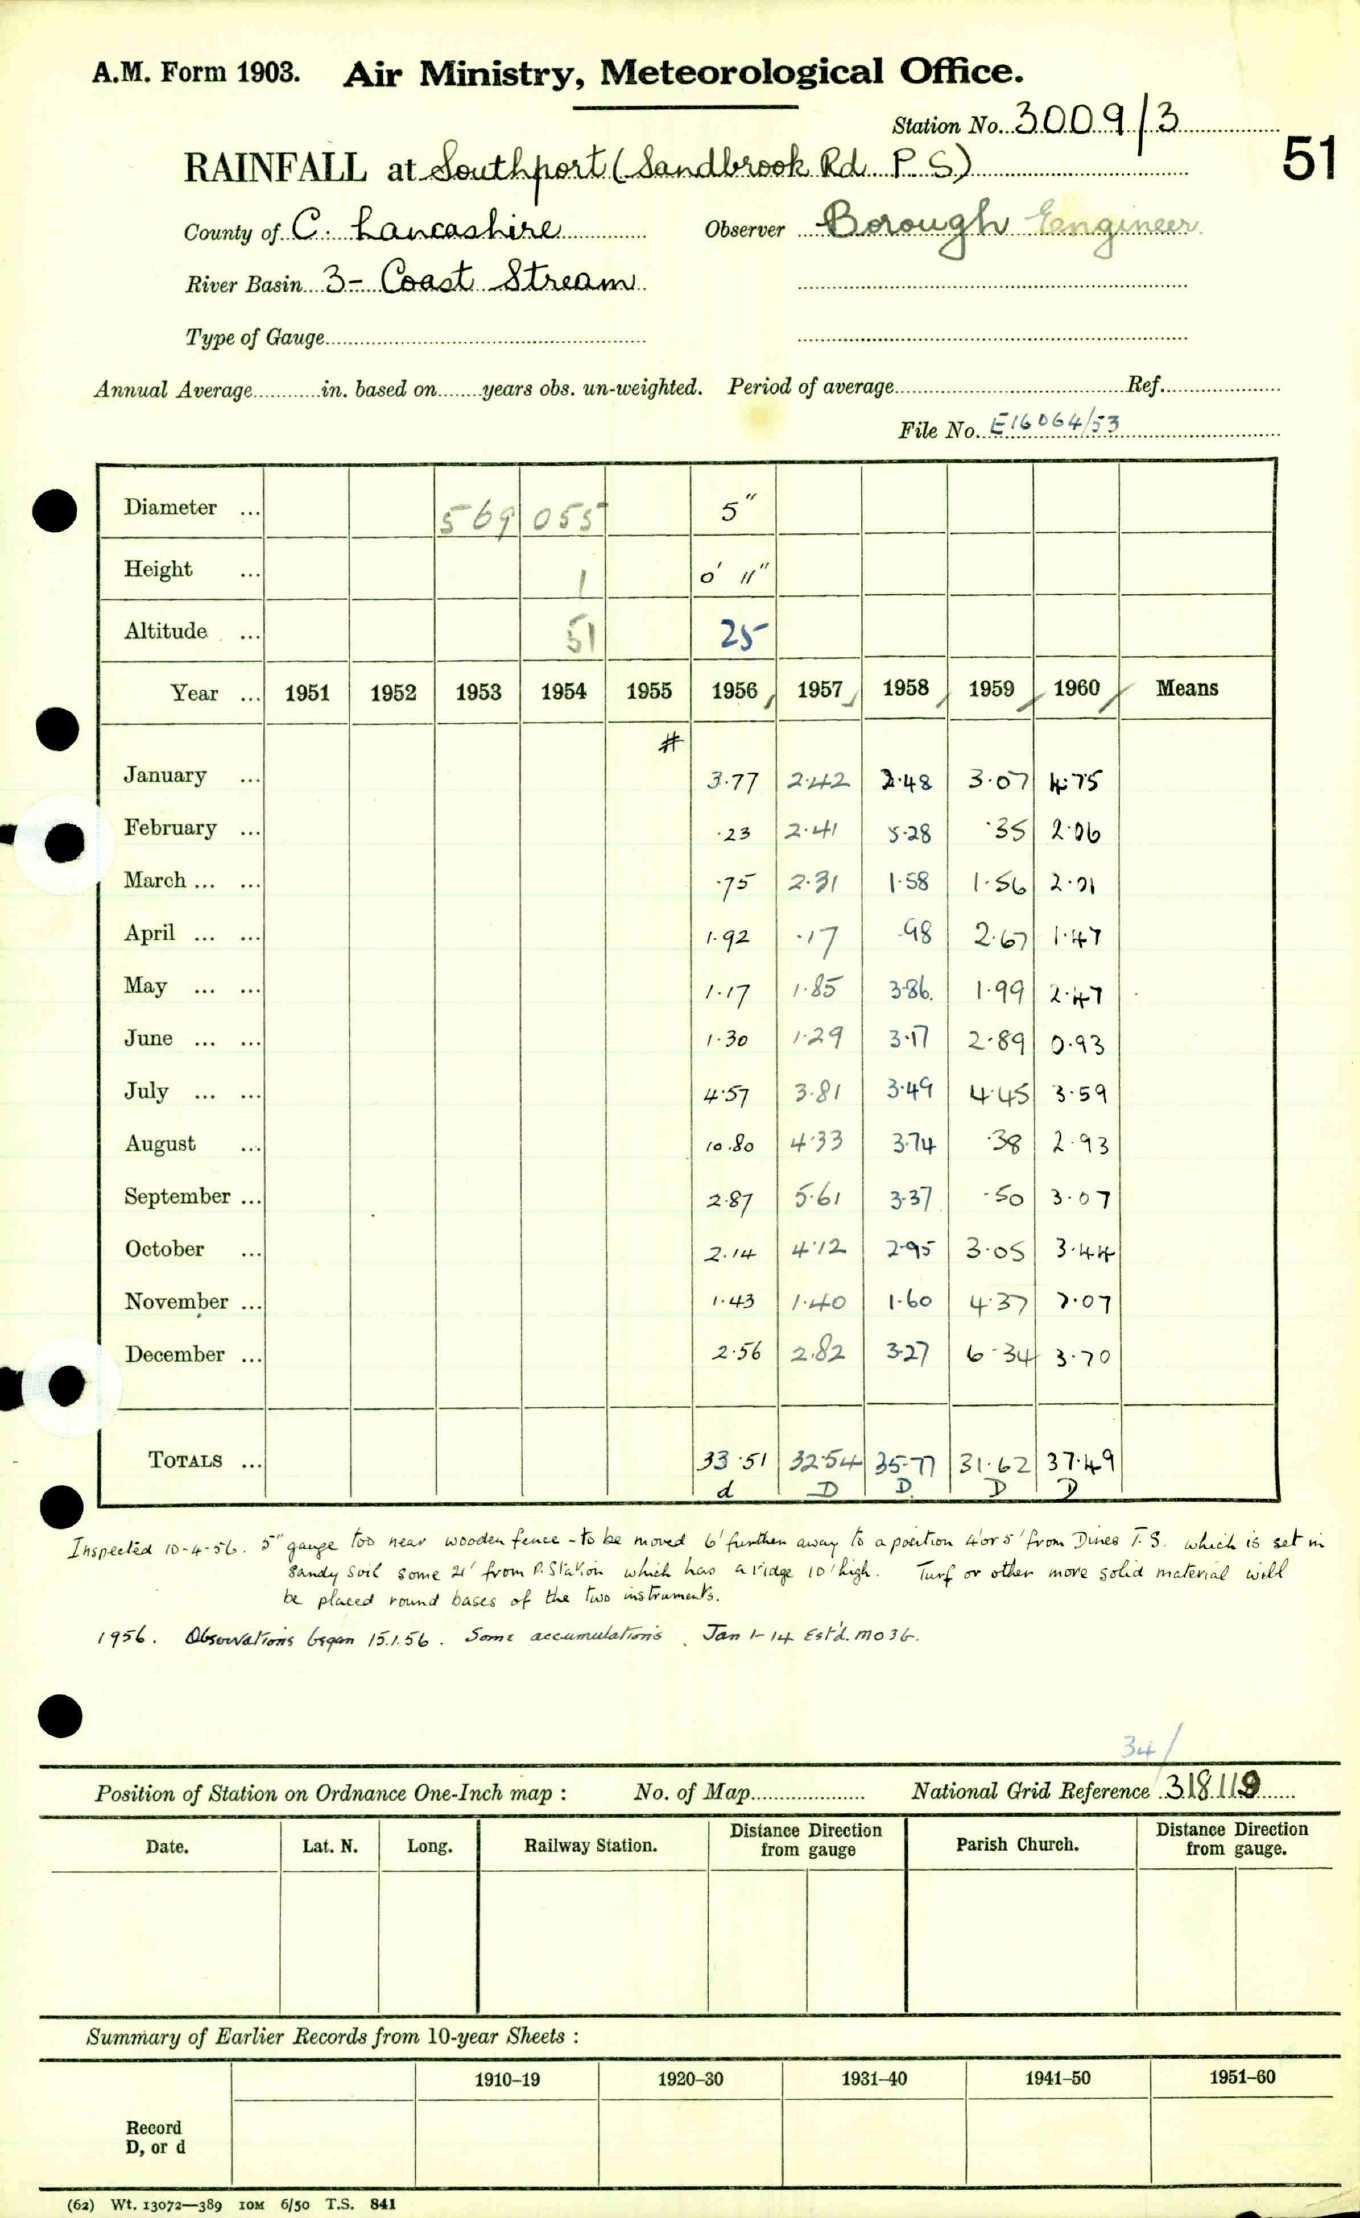 A.M. Form 1903. Air Ministry, Meteorological Office.
Station No. 3009/3
51
RAINFALL at Southport (Sandbrook Rd P.S)
County of C. Lancashire Observer Borough Engineer
River Basin 3- Coast Stream
Type of Gauge
Annual Average in. based on years obs. un-weighted. Period of average Ref.
File No. E16064/53
Diameter ... 569 055 5"
Height ... 1 0' 11"
Altitude ... 51 25
Year ... 1951 1952 1953 1954 1955 1956, 1957 1958 1959 1960 Means
#
January ... 3.77 2.42 2.48 3.07 4.75
February ... .23 2.41 5.28 .35 2.06
March ... ... .75 2.31 1.58 1.56 2.01
April ... ... 1.92 .17 .98 2.67 1.47
May ... ... 1.17 1.85 3.86 1.99 2.47
June ... ... 1.30 1.29 3.17 2.89 0.93
July ... ... 4.57 3.81 3.49 4.45 3.59
August ... 10.80 4.33 3.74 .38 2.93
September ... 2.87 5.61 3.37 .50 3.07
October ... 2.14 4.12 2.95 3.05 3.44
November ... 1.43 1.40 1.60 4.37 7.07
December ... 2.56 2.82 3.27 6.34 3.70
TOTALS ... 33.51 32.54 35.77 31.62 37.49
d D D D D
Inspected 10-4-56. 5" gauge too near wooden fence - to be moved 6' further away to a position 4' or 5' from Dines T.S. which is set in
sandy soil some 21' from P. Station which has a ridge 10' high. Turf or other more solid material will
be placed round bases of the two instruments.
1956. Observations began 15.1.56. Some accumulations. Jan 1-14 Est'd. MO3b.
34/
Position of Station on Ordnance One-Inch map : No. of Map National Grid Reference 318119
Date. Lat. N. Long. Railway Station. Distance from Direction gauge Parish Church. Distance from Direction gauge.
Summary of Earlier Records from 10-year Sheets :
1910–19 1920–30 1931–40 1941–50 1951–60
Record
D, or d
(62) Wt. 13072—389 10M 6/50 T.S. 841